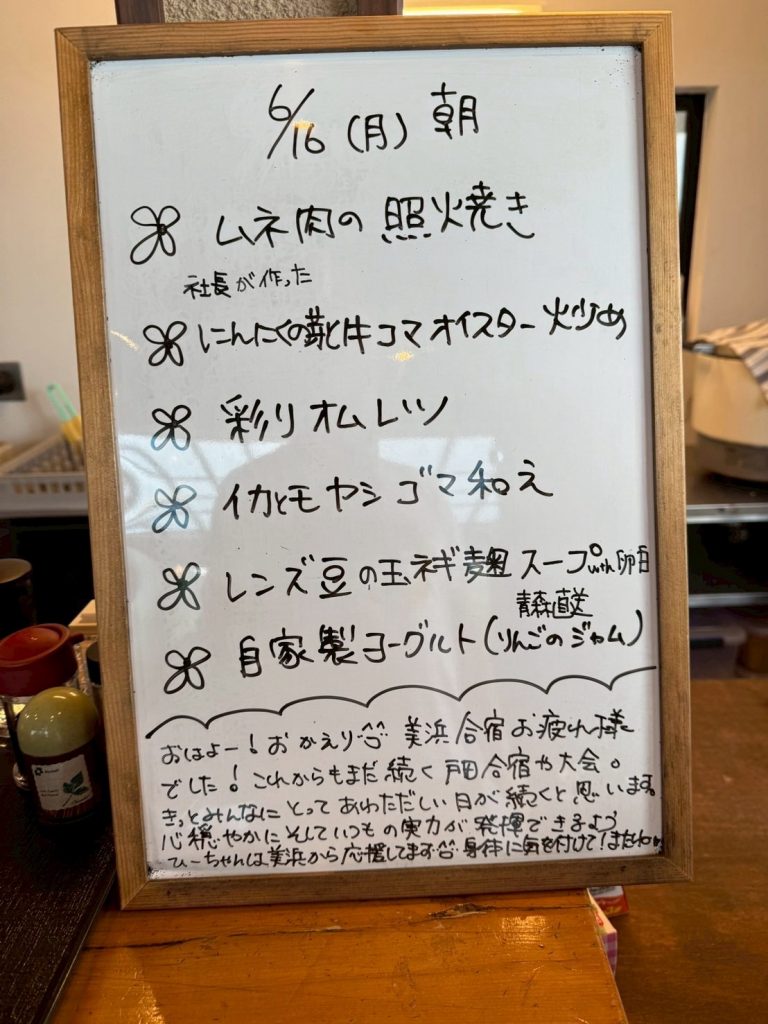 6/16 (月) 朝
ムネ肉の 照焼き
社長が作った
にんにくの芽と牛コマオイスター炒め
彩りオムレツ
イカとモヤシゴマ和え
レンズ豆の玉ネギ麹スープwith卵白
青森直送
自家製ヨーグルト(りんごのジャム)
おはよー!おかえり 美浜合宿お疲れ様
でした!これからもまだ続く戸田合宿や大会。
きっとみんなにとってあわただしい日が続くと思います。
心穏やかにそしていつもの実力が発揮できるよう
ひーちゃんは美浜から応援してます 身体に気を付けて!またね